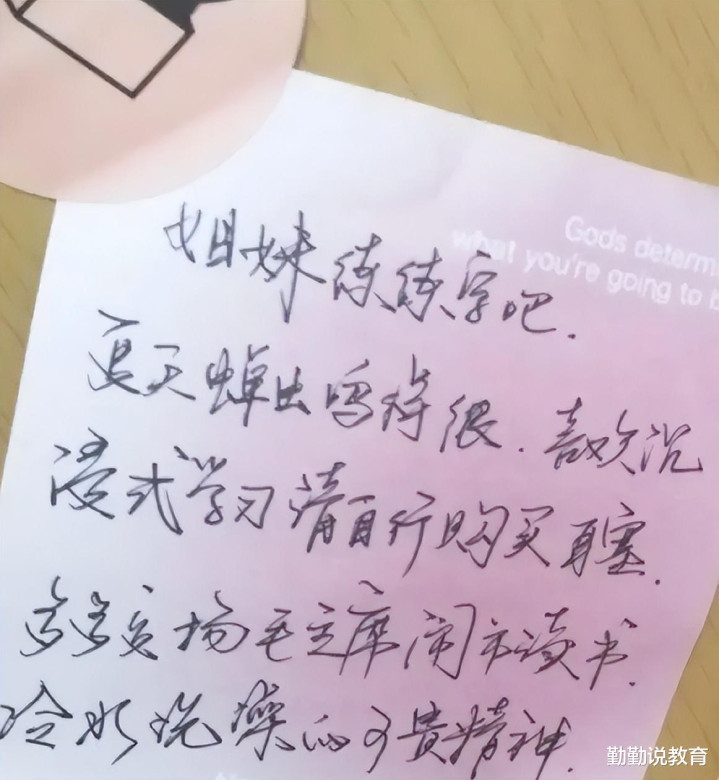 Gods determ
what you're going to b
姐妹练练字吧.
夏天蝉出鸣得很.喜欢沉
浸式学习请自行购买耳塞.
多多发扬毛主席闹市读书.
冷水洗澡的可贵精神.
勤勤说教育